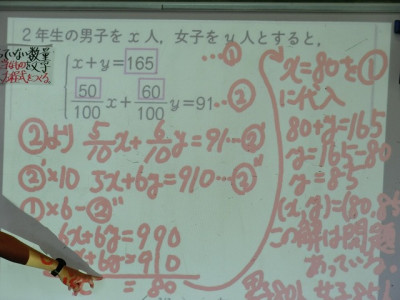 2年生の男子を x 人，女子を y 人とすると，
x+y=165 …①
50/100 x + 60/100 y=91 …②
②より 5/10 x + 6/10 y=91…②'
②'×10 5x+6y=910…②''
①×6−②''
6x+6y=990
5x+6y=910
x = 80
x=80を①
に代入
80+y=165
y=165-80
y=85
(x,y)=(80,85
この解は問題
あっている
男子80人 女子85人